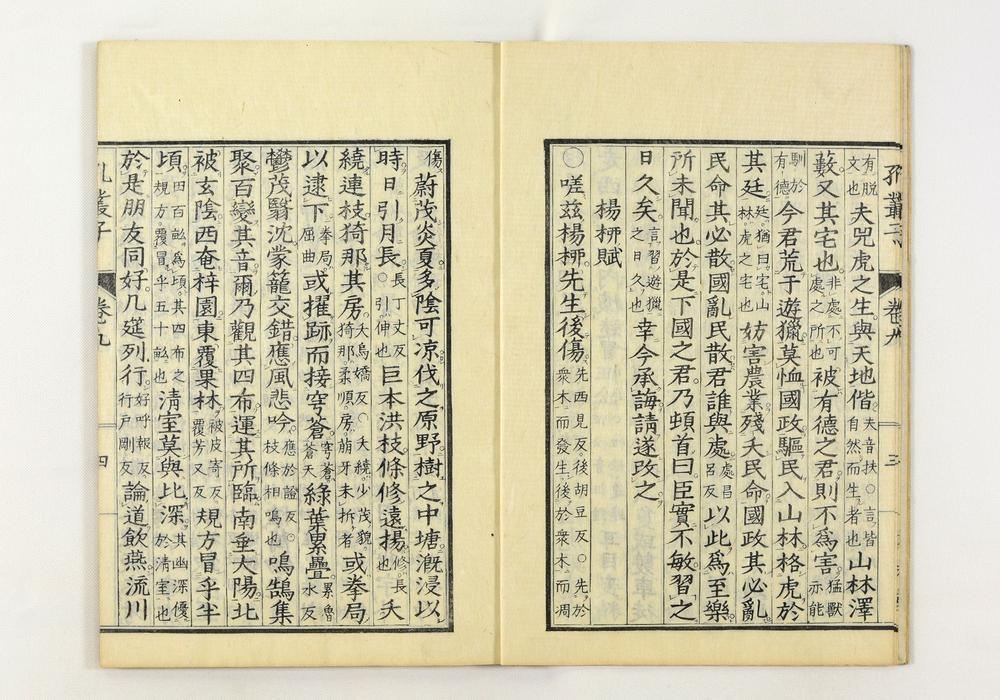 孔叢子 卷九 三
有脱文也夫兕虎之生與天地偕夫音扶○言皆自然而生者也山林澤
藪又其宅也非處不可處之所也被有德之君則不爲害猛獸亦能
馴於有德今君荒于遊獵莫恤國政驅民入山林格虎於
其廷廷猶曰宅山林虎之宅也妨害農業殘夭民命國政其必亂
民命其必散國亂民散君誰與處處昌呂反以此爲至樂
所未聞也於是下國之君乃頓首曰臣實不敏習之
日久矣言習遊獵之日久也幸今承誨請遂改之
楊栁賦
○嗟茲楊栁先生後傷先西見反後胡豆反○先於衆木而發生後於衆木而凋
傷蔚茂炎夏多陰可凉伐之原野樹之中塘漑浸以
時日引月長長丁丈反○引伸也巨本洪枝條修遠揚修長也夭
繞連枝猗那其房夭烏嬌反○夭繞少茂貌猗那柔順房萠牙未拆者或拳局
以逮下拳局屈曲或擢跡而接穹蒼穹蒼蒼天綠葉累疊累魯水反
鬱茂翳沈蒙籠交錯應風悲吟應於證反○枝條相鳴也鳴鵠集
聚百變其音爾乃觀其四布運其所臨南垂大陽北
被玄陰西奄梓園東覆果林被皮寄反覆芳又反規方冒乎半
頃田百畝爲頃其四布之規方覆冒乎五十畝也淸室莫與比深其幽深優於淸室也
於是朋友同好几筵列行好呼報反行戸剛反論道飲燕流川
孔叢子 卷九 四